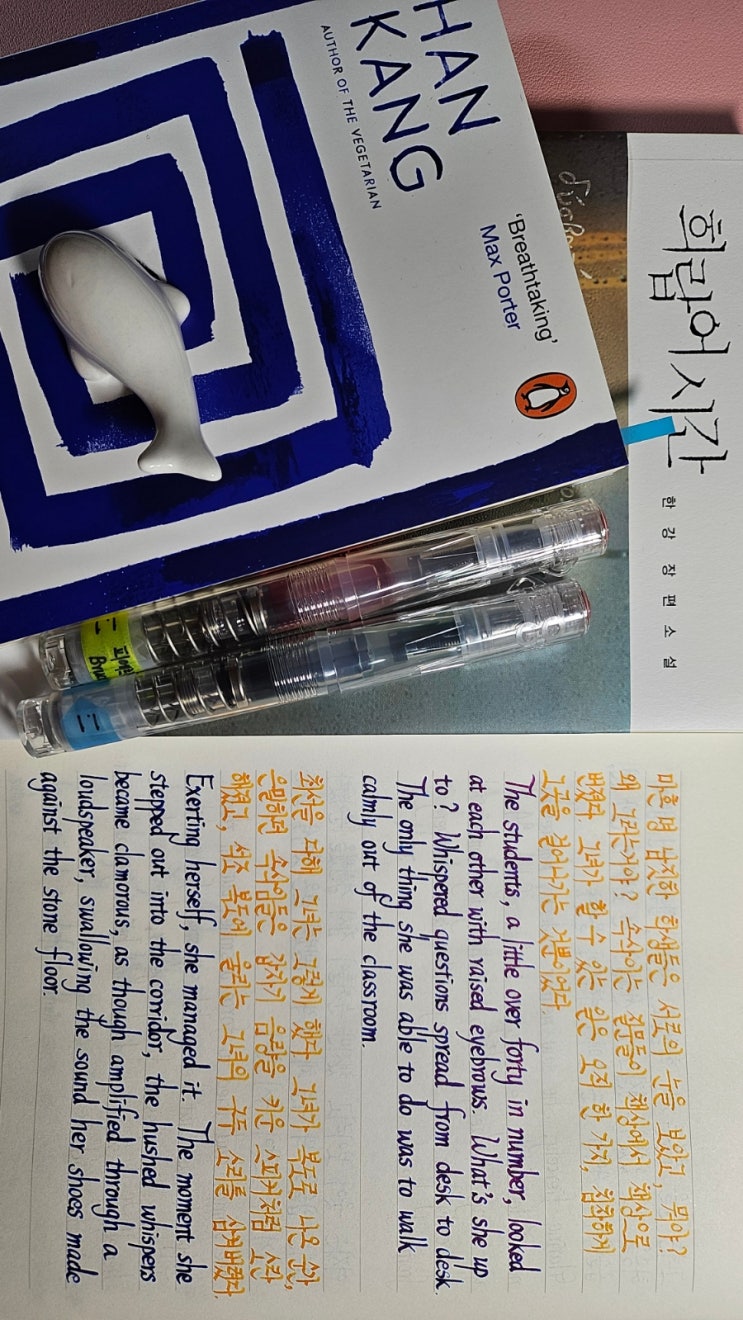 HAN
KANG
AUTHOR OF THE VEGETARIAN
'Breathtaking'
Max Porter
희랍어 시간
한강 장편소설
마흔 명 남짓한 학생들은 서로의 눈을 보았고, 뭐야?
왜 그러는거야? 속삭이는 질문들이 책상에서 책상으로
번졌다. 그녀가 할 수 있는 일은 오직 한 가지, 침착하게
그곳을 걸어나가는 것뿐이었다.
The students, a little over forty in number, looked
at each other with raised eyebrows. What's she up
to? Whispered questions spread from desk to desk.
The only thing she was able to do was to walk
calmly out of the classroom.
최선을 다해 그녀는 그렇게 했다. 그녀가 복도로 나온 순간,
은밀하던 속삭임들은 갑자기 음량을 키운 스피커처럼 소란
해졌고, 석조 복도에 울리는 그녀의 구두 소리를 삼켜버렸다.
Exerting herself, she managed it. The moment she
stepped out into the corridor, the hushed whispers
became clamorous, as though amplified through a
loudspeaker, swallowing the sound her shoes made
against the stone floor.